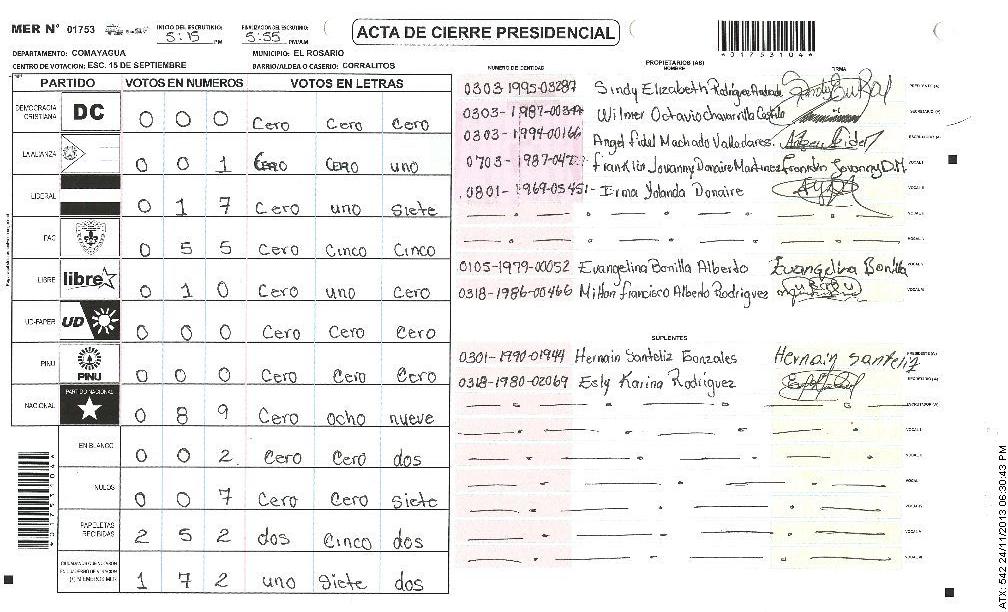 MER Nº 01753
INICIO DEL ESCRUTINIO: 5:15 PM
FINALIZACION DEL ESCRUTINIO: 5:55 PM/AM
ACTA DE CIERRE PRESIDENCIAL
*01753104*
DEPARTAMENTO: COMAYAGUA
MUNICIPIO: EL ROSARIO
CENTRO DE VOTACION: ESC. 15 DE SEPTIEMBRE
BARRIO/ALDEA O CASERIO: CORRALITOS
PARTIDO VOTOS EN NUMEROS VOTOS EN LETRAS
DEMOCRACIA CRISTIANA DC 0 0 0 Cero Cero Cero
LA ALIANZA 0 0 1 Cero Cero uno
LIBERAL 0 1 7 Cero uno Siete
FAC 0 5 5 Cero Cinco Cinco
LIBRE libre 0 1 0 Cero uno Cero
UD-FAPER UD 0 0 0 Cero Cero Cero
PINU PINU 0 0 0 Cero Cero Cero
NACIONAL PARTIDO NACIONAL 0 8 9 Cero ocho nueve
EN BLANCO 0 0 2 Cero Cero dos
NULOS 0 0 7 Cero Cero Siete
PAPELETAS RECIBIDAS 2 5 2 dos Cinco dos
1 7 2 uno Siete dos
PROPIETARIOS (AS)
NUMERO DE IDENTIDAD NOMBRE FIRMA
0303 1995-03287 Sindy Elizabeth Rodriguez Andrade PRESIDENTE (A)
0303-1987-00344 Wilmer Octavio Chavarrilla Castillo SECRETARIO (A)
0303-1994-00166 Angel Fidel Machado Valladares. ESCRUTADOR (A)
0703-1987-04 Franklin Jovanny Donaire Martinez Franklin Jovanny D.M VOCAL I
0801-1969-05451- Irma Yolanda Donaire VOCAL II
VOCAL III
VOCAL IV
0105-1979-00052 Evangelina Bonilla Alberto Evangelina Bonilla VOCAL V
0318-1986-00466 Milton Francisco Alberto Rodriguez VOCAL VI
SUPLENTES
0301-1990-01944 Hernain Santeliz Gonzales Hernain Santeliz PRESIDENTE (A)
0318-1980-02069 Esly Karina Rodriguez SECRETARIO (A)
ESCRUTADOR (A)
VOCAL I
VOCAL II
VOCAL III
VOCAL IV
VOCAL V
VOCAL VI
*01753104*
ATX: 542 24/11/2013 06:30:43 PM